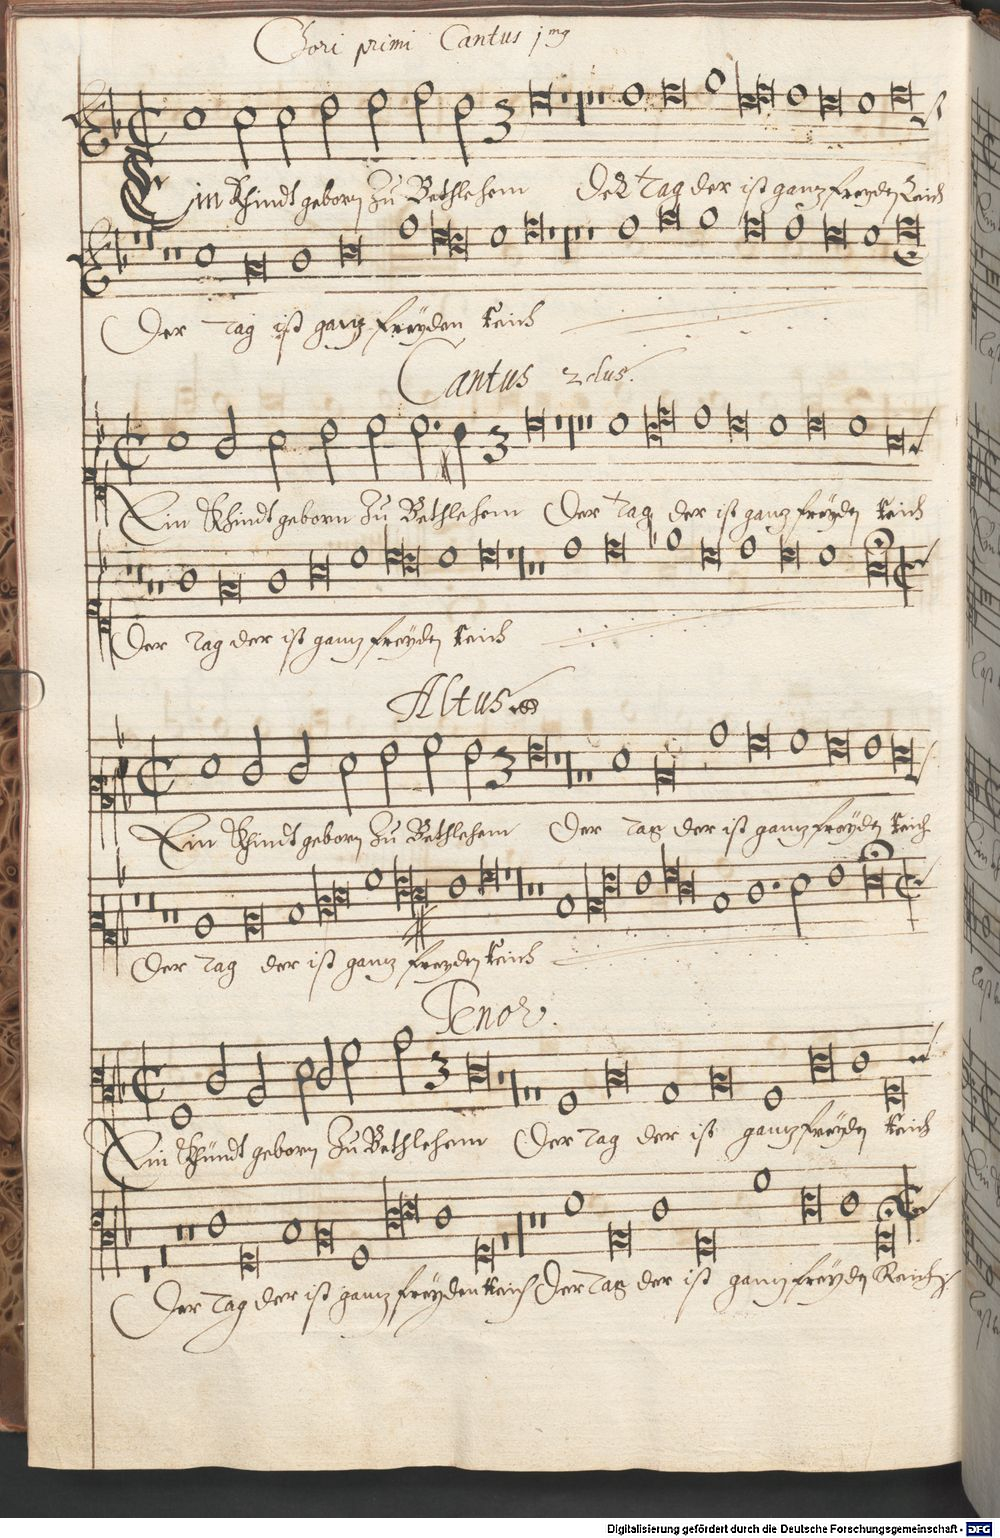 Chori primi Cantus jmg
Ein Khindt geborn Zu Bethlehem Der Tag der ist ganz freyden Reich
Der Tag ist ganz freyden Reich
Cantus 2dus.
Ein Khindt geborn Zu Bethlehem Der Tag der ist ganz freyden Reich
Der Tag der ist ganz freyden Reich
Altus
Ein Khindt geborn Zu Bethlehem Der Tag der ist ganz freyden Reich
Der Tag der ist ganz freyden Reich
Tenor.
Ein Khindt geborn Zu Bethlehem Der Tag der ist ganz freyden Reich
Der Tag der ist ganz freyden Reich Der Tag der ist ganz freyden Reich
Digitalisierung gefördert durch die Deutsche Forschungsgemeinschaft - DFG